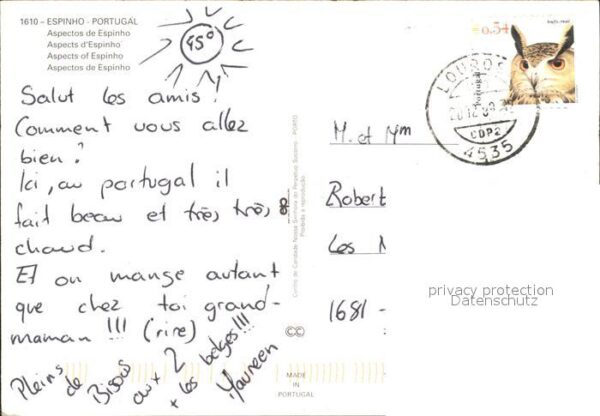 1610 – ESPINHO - PORTUGAL
Aspectos de Espinho
Aspects d'Espinho
Aspects of Espinho
Aspectos de Espinho
45°
Salut les amis!
Comment vous allez
bien?
Ici, au portugal il
fait beau et très très
chaud.
Et on mange autant
que chez toi grand-
maman !!! (rire)
Pleins de Bisous aux 2
+ les belges!!!
Maureen
Centro de Caridade Nossa Senhora do Perpétuo Socorro - PORTO
Proibida a reprodução
CC
MADE
IN
PORTUGAL
0.54
Portugal
CDP2
4535
M. et Mm
Robert
Les
1681 -
privacy protection
Datenschutz